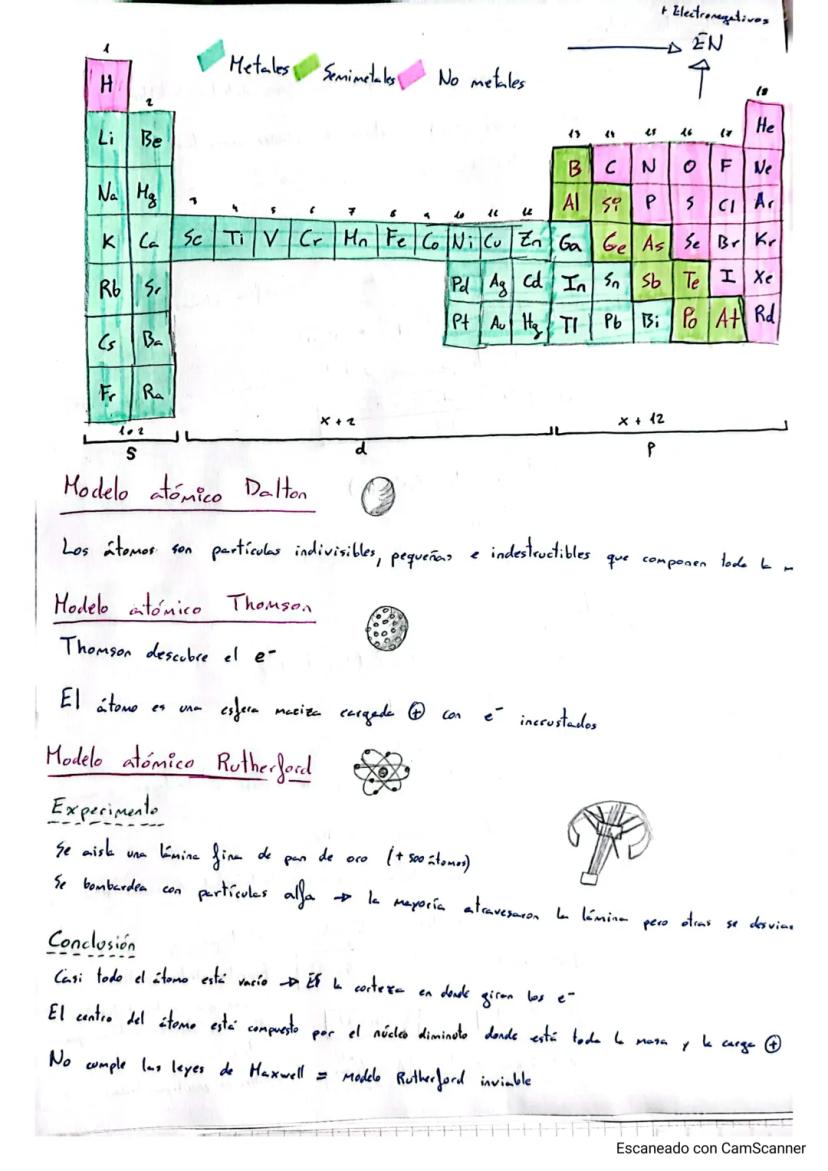 + Electronegativos
EN
Metales Semimetales No metales
1 18
H He
2 13 14 15 16 17
Li Be B C N O F Ne
Na Mg Al Si P S Cl Ar
3 4 5 6 7 8 9 10 11 12
K Ca Sc Ti V Cr Mn Fe Co Ni Cu Zn Ga Ge As Se Br Kr
Rb Sr Pd Ag Cd In Sn Sb Te I Xe
Cs Ba Pt Au Hg Tl Pb Bi Po At Rd
Fr Ra
1 o 2 x + 2 x + 12
s d p
Modelo atómico Dalton
Los átomos son partículas indivisibles, pequeñas e indestructibles que componen toda la m
Modelo atómico Thomson
Thomson descubre el e-
El átomo es una esfera maciza cargada ⊕ con e- incrustados
Modelo atómico Rutherford
Experimento
Se aisla una lámina fina de pan de oro (+ 500 átomos)
Se bombardea con partículas alfa → la mayoría atravesaron la lámina pero otras se desvían
Conclusión
Casi todo el átomo está vacío → Es la corteza en donde giran los e-
El centro del átomo está compuesto por el núcleo diminuto donde está toda la masa y la carga ⊕
No cumple las leyes de Maxwell = Modelo Rutherford inviable
Escaneado con CamScanner